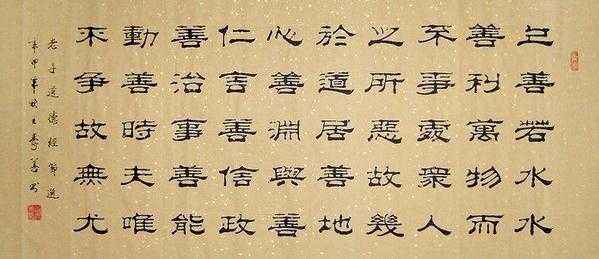 上善若水水
善利萬物而
不爭處衆人
之所惡故幾
於道居善地
心善淵與善
仁言善信政
善治事善能
動善時夫唯
不爭故無尤
老子道德經節選